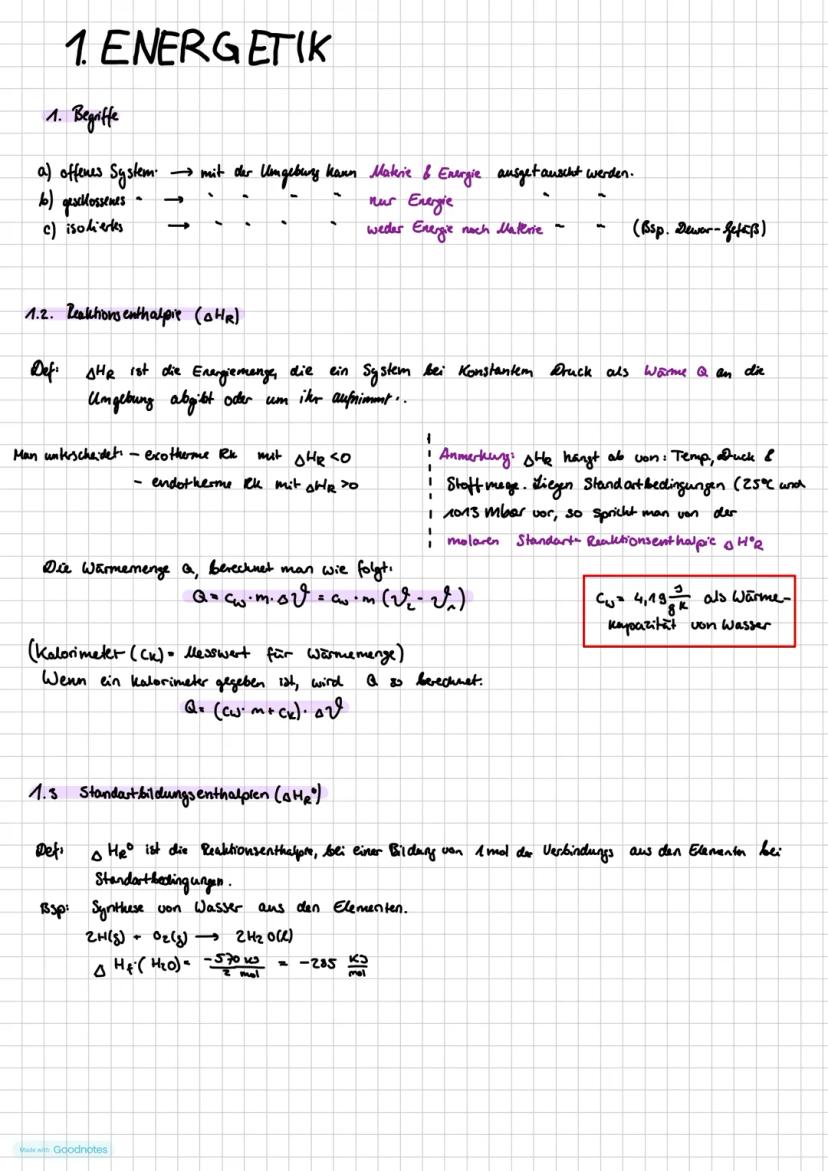 1. ENERGETIK
1. Begriffe
a) offenes System → mit der Umgebung kann Materie & Energie ausgetauscht werden.
b) geschlossenes " → " " " " nur Energie " "
c) isoliertes → " " " " weder Energie noch Materie " " (Bsp. Dewar-Gefäß)
1.2. Reaktionsenthalpie (ΔHR)
Def: ΔHR ist die Energiemenge, die ein System bei Konstantem Druck als Wärme Q an die
Umgebung abgibt oder um ihr aufnimmt.
Man unterscheidet: - exotherme Rk mit ΔHR <0
- endotherme Rk mit ΔHR >0
Anmerkung: ΔHR hängt ab von: Temp, Druck &
Stoffmege. Liegen Standartbedingungen (25°C und
1013 Mbar vor, so spricht man von der
molaren Standart-Reaktionsenthalpie ΔH°R
Die Wärmemenge Q, berechnet man wie folgt:
Q = cw · m · Δϑ = cw · m (ϑ2 - ϑ1)
cw = 4,19 J/gK als Wärme-
kapazität von Wasser
(Kalorimeter (CK) = Messwert für Wärmemenge)
Wenn ein Kalorimeter gegeben ist, wird Q so berechnet.
Q = (cw · m + CK) · Δϑ
1.3 Standartbildungsenthalpien (ΔHR°)
Def: ΔHR° ist die Reaktionsenthalpie, bei einer Bildung von 1 mol der Verbindungs aus den Elementen bei
Standartbedingungen.
Bsp: Synthese von Wasser aus den Elementen.
2H(g) + O2(g) → 2H2O(l)
ΔHf·(H2O) = -570 KJ / 2 mol = -285 KJ/mol
Made with Goodnotes